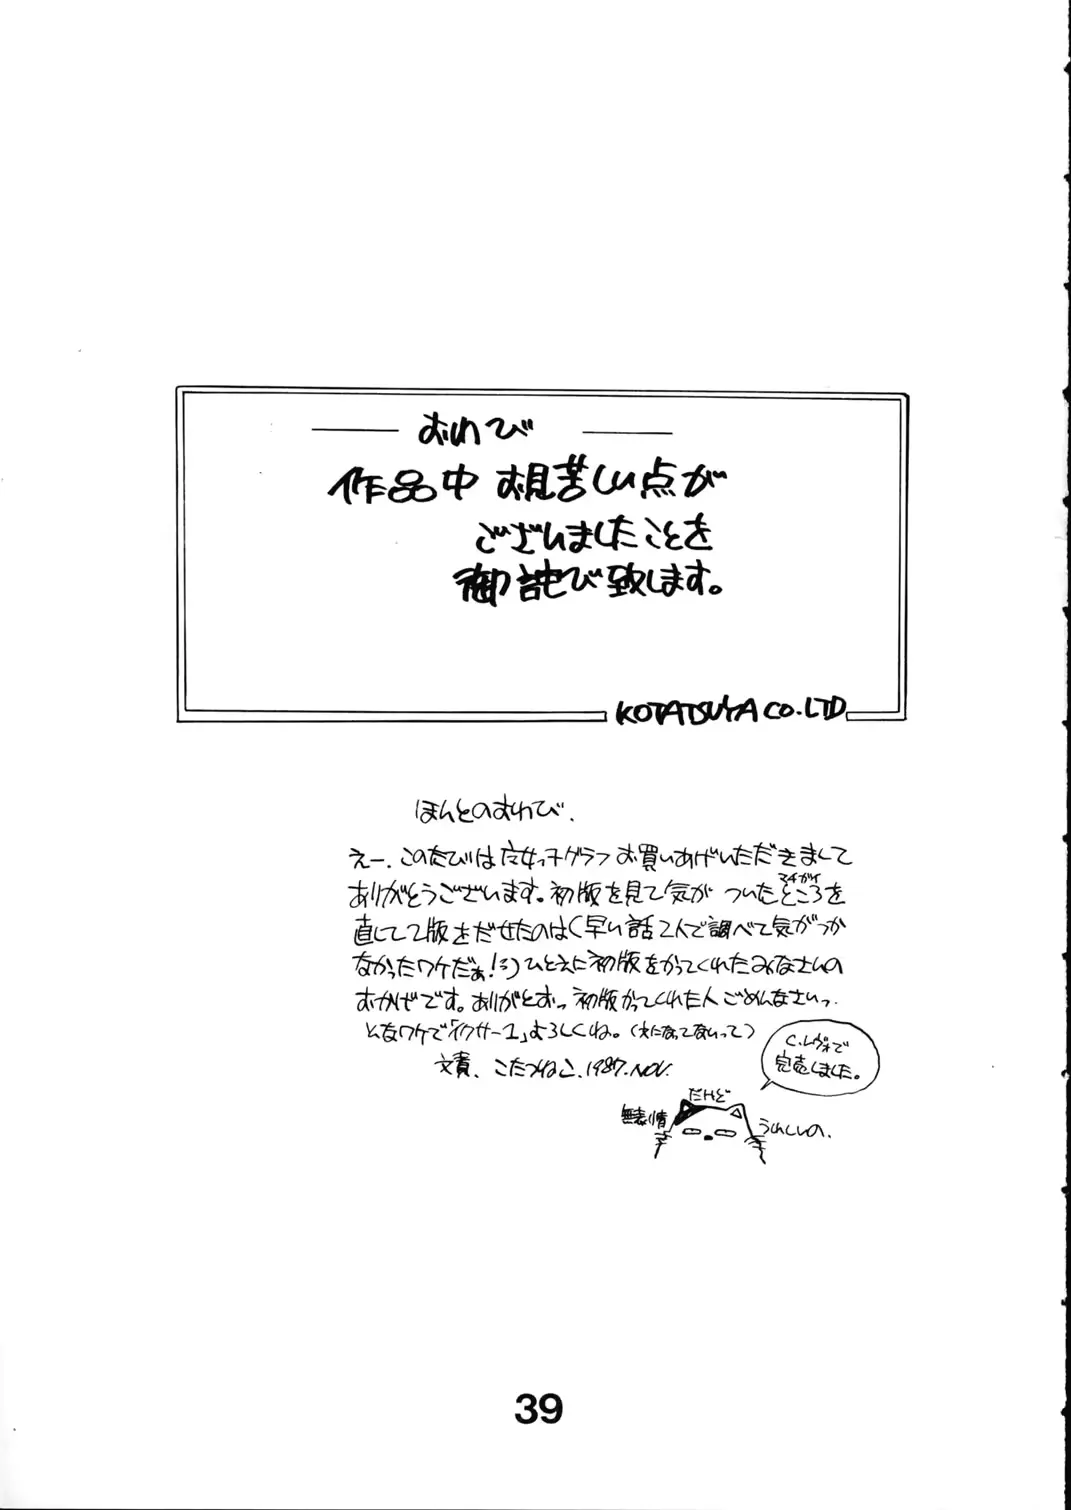 おわび
作品中 お見苦しい点が
ございましたことを
御詫び致します。
KOTATSUYA CO.LTD
ほんとのおわび.
えー. このたびは 女っ子グラフ お買いあげいただきまして
マチガイ
ありがとうございます。初版を見て気が ついたところを
直して2版をだせたのは(早い話2人で調べて気がつか
なかったワケだぁ!) ひとえに初版をかってくれたみなさんの
おかげです。ありがとおっ 初版かってくれた人 ごめんなさいっ.
とゆワケで「イクサー1」よろしくね。(えになってないって)
文責. こたつねこ. 1987. NOV.
C.レヴォで
完売しました。
だけど
無表情
うれしいの.
39